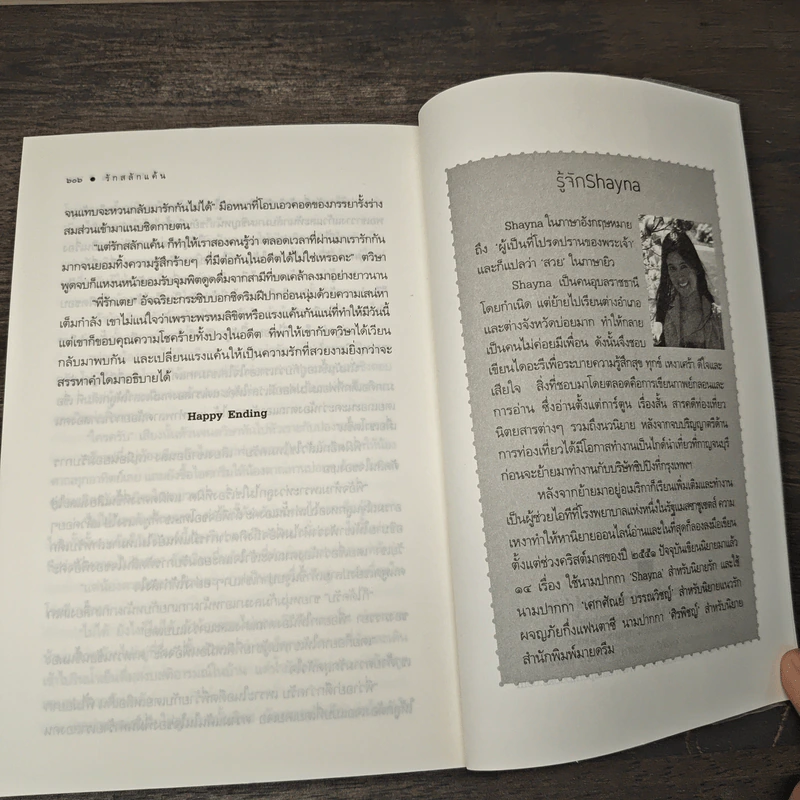 ๖๐๖ ● รักสลักแค้น
จนแทบจะหวนกลับมารักกันไม่ได้" มือหนาที่โอบเอวคอดของภรรยารั้งร่าง
สมส่วนเข้ามาแนบชิดกายตน
"แต่รักสลักแค้น ก็ทำให้เราสองคนรู้ว่า ตลอดเวลาที่ผ่านมาเรารักกัน
มากจนยอมทิ้งความรู้สึกร้ายๆ ที่มีต่อกันในอดีตได้ไม่ใช่เหรอคะ" ตวิษา
พูดจบก็แหงนหน้ายอมรับจุมพิตดูดดื่มจากสามีที่บดเคล้าลงมาอย่างยาวนาน
"พี่รักเตย" อัจฉริยะกระซิบบอกชิดริมฝีปากอ่อนนุ่มด้วยความเสน่หา
เต็มกำลัง เขาไม่แน่ใจว่าเพราะพรหมลิขิตหรือแรงแค้นกันแน่ที่ทำให้มีวันนี้
แต่เขาก็ขอบคุณความโชคร้ายทั้งปวงในอดีต ที่พาให้เขากับตวิษาได้เวียน
กลับมาพบกัน และเปลี่ยนแรงแค้นให้เป็นความรักที่สวยงามยิ่งกว่าจะ
สรรหาคำใดมาอธิบายได้
Happy Ending
รู้จักShayna
Shayna ในภาษาอังกฤษหมาย
ถึง 'ผู้เป็นที่โปรดปรานของพระเจ้า'
และก็แปลว่า 'สวย' ในภาษายิว
Shayna เป็นคนอุบลราชธานี
โดยกำเนิด แต่ย้ายไปเรียนต่างอำเภอ
และต่างจังหวัดบ่อยมาก ทำให้กลาย
เป็นคนไม่ค่อยมีเพื่อน ดังนั้นจึงชอบ
เขียนไดอะรีเพื่อระบายความรู้สึกสุข ทุกข์ เหงาเศร้า ดีใจและ
เสียใจ สิ่งที่ชอบมาโดยตลอดคือการเขียนกาพย์กลอนและ
การอ่าน ซึ่งอ่านตั้งแต่การ์ตูน เรื่องสั้น สารคดีท่องเที่ยว
นิตยสารต่างๆ รวมถึงนวนิยาย หลังจากจบปริญญาตรีด้าน
การท่องเที่ยวได้มีโอกาสทำงานเป็นไกด์นำเที่ยวที่กาญจนบุรี
ก่อนจะย้ายมาทำงานกับบริษัทชิปปิ้งที่กรุงเทพฯ
หลังจากย้ายมาอยู่อเมริกาก็เรียนเพิ่มเติมและทำงาน
เป็นผู้ช่วยไอทีที่โรงพยาบาลแห่งหนึ่งในรัฐแมสซาชูเซตส์ ความ
เหงาทำให้หานิยายออนไลน์อ่านและในที่สุดก็ลองลงมือเขียน
ตั้งแต่ช่วงคริสต์มาสของปี ๒๕๕๑ ปัจจุบันเขียนนิยายมาแล้ว
๑๔ เรื่อง ใช้นามปากกา 'Shayna' สำหรับนิยายรัก และใช้
นามปากกา 'เศกศัณย์ บรรณวิชญ์' สำหรับนิยายแนวรัก
ผจญภัยกึ่งแฟนตาซี นามปากกา 'ศิรพิชญ์' สำหรับนิยาย
สำนักพิมพ์มายดรีม